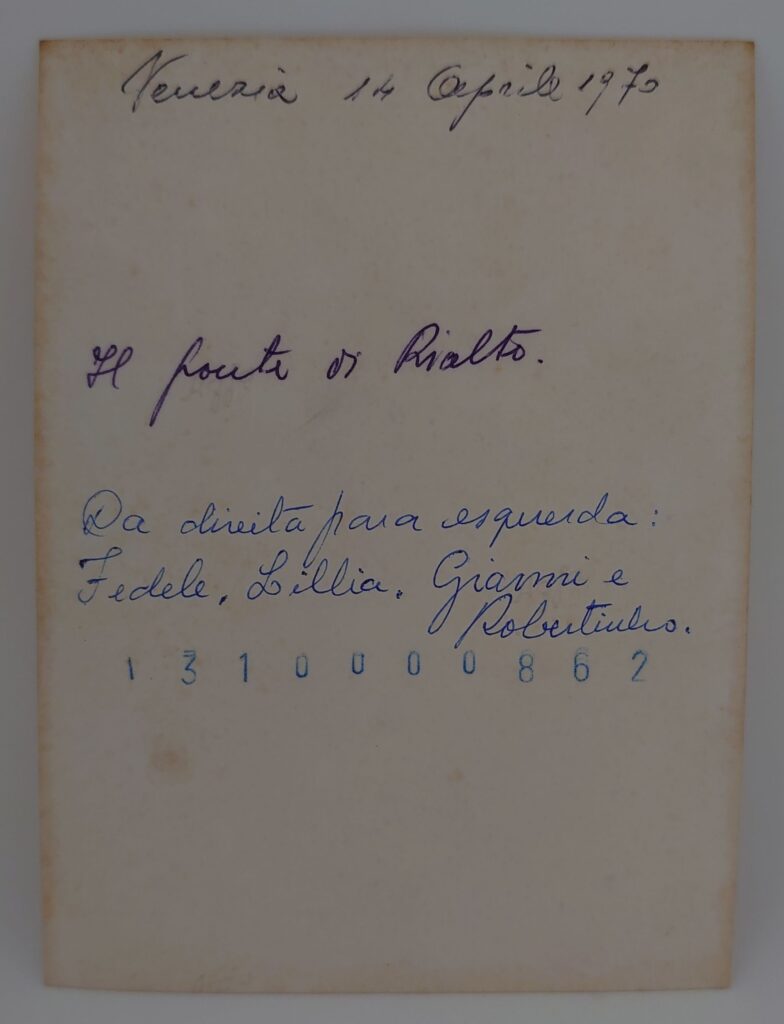 Venezia 14 Aprile 1970
Il ponte di Rialto.
Da direita para esquerda:
Fedele, Lillia, Gianni e
Robertinho.
1310000862